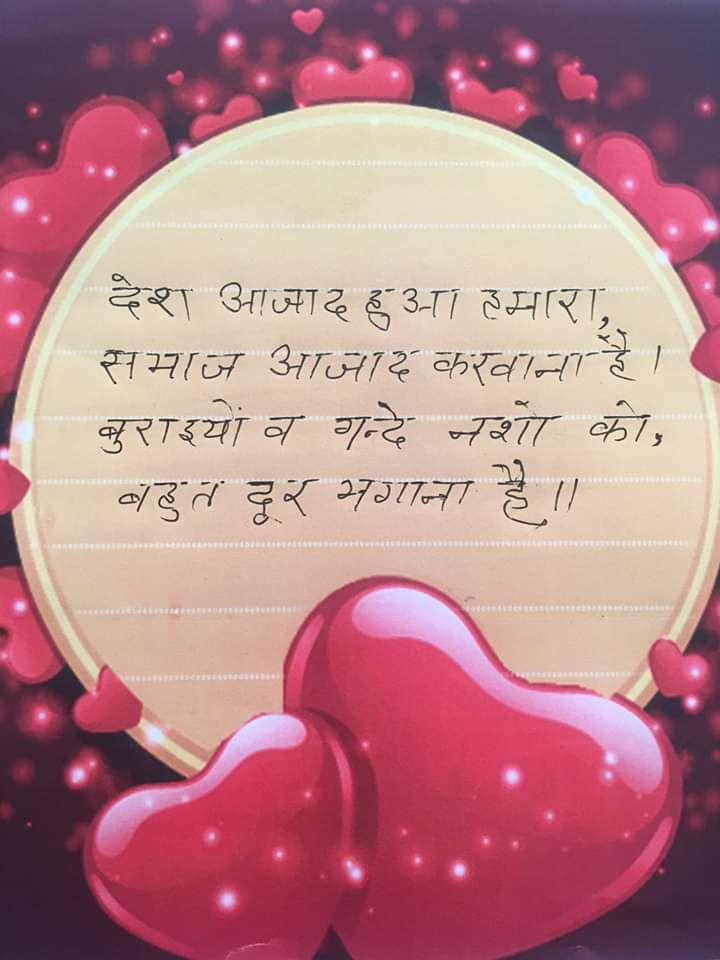 देश आजाद हुआ हमारा,
समाज आजाद करवाना है।
बुराइयों व गन्दे नशों को,
बहुत दूर भगाना है॥